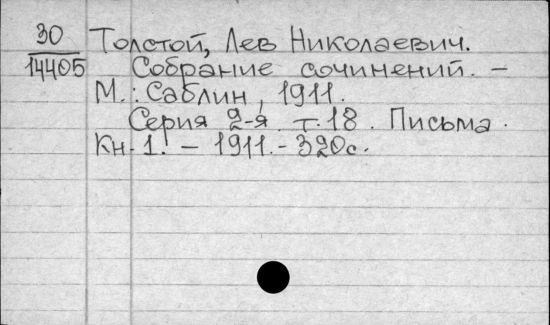 30
14405
Толстой, Лев Николаевич.
Собрание сочинений. –
М.: Саблин, 1911.
Серия 2-я. т.18. Письма.
Кн. 1. – 1911. – 320с.